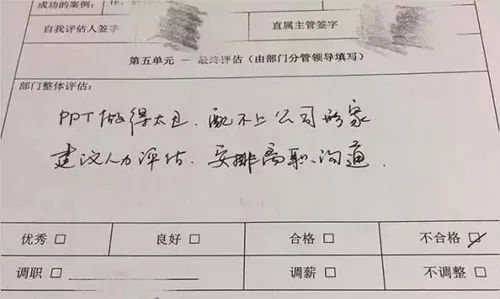 成功的案例:
自我评估人签字 直属主管签字
第五单元 — 最终评估（由部门分管领导填写）
部门整体评估:
PPT做得太丑，配不上公司形象
建议人力评估，安排离职沟通.
优秀 □ 良好 □ 合格 □ 不合格 ☑
调职 □ 调薪 □ 不调整 □